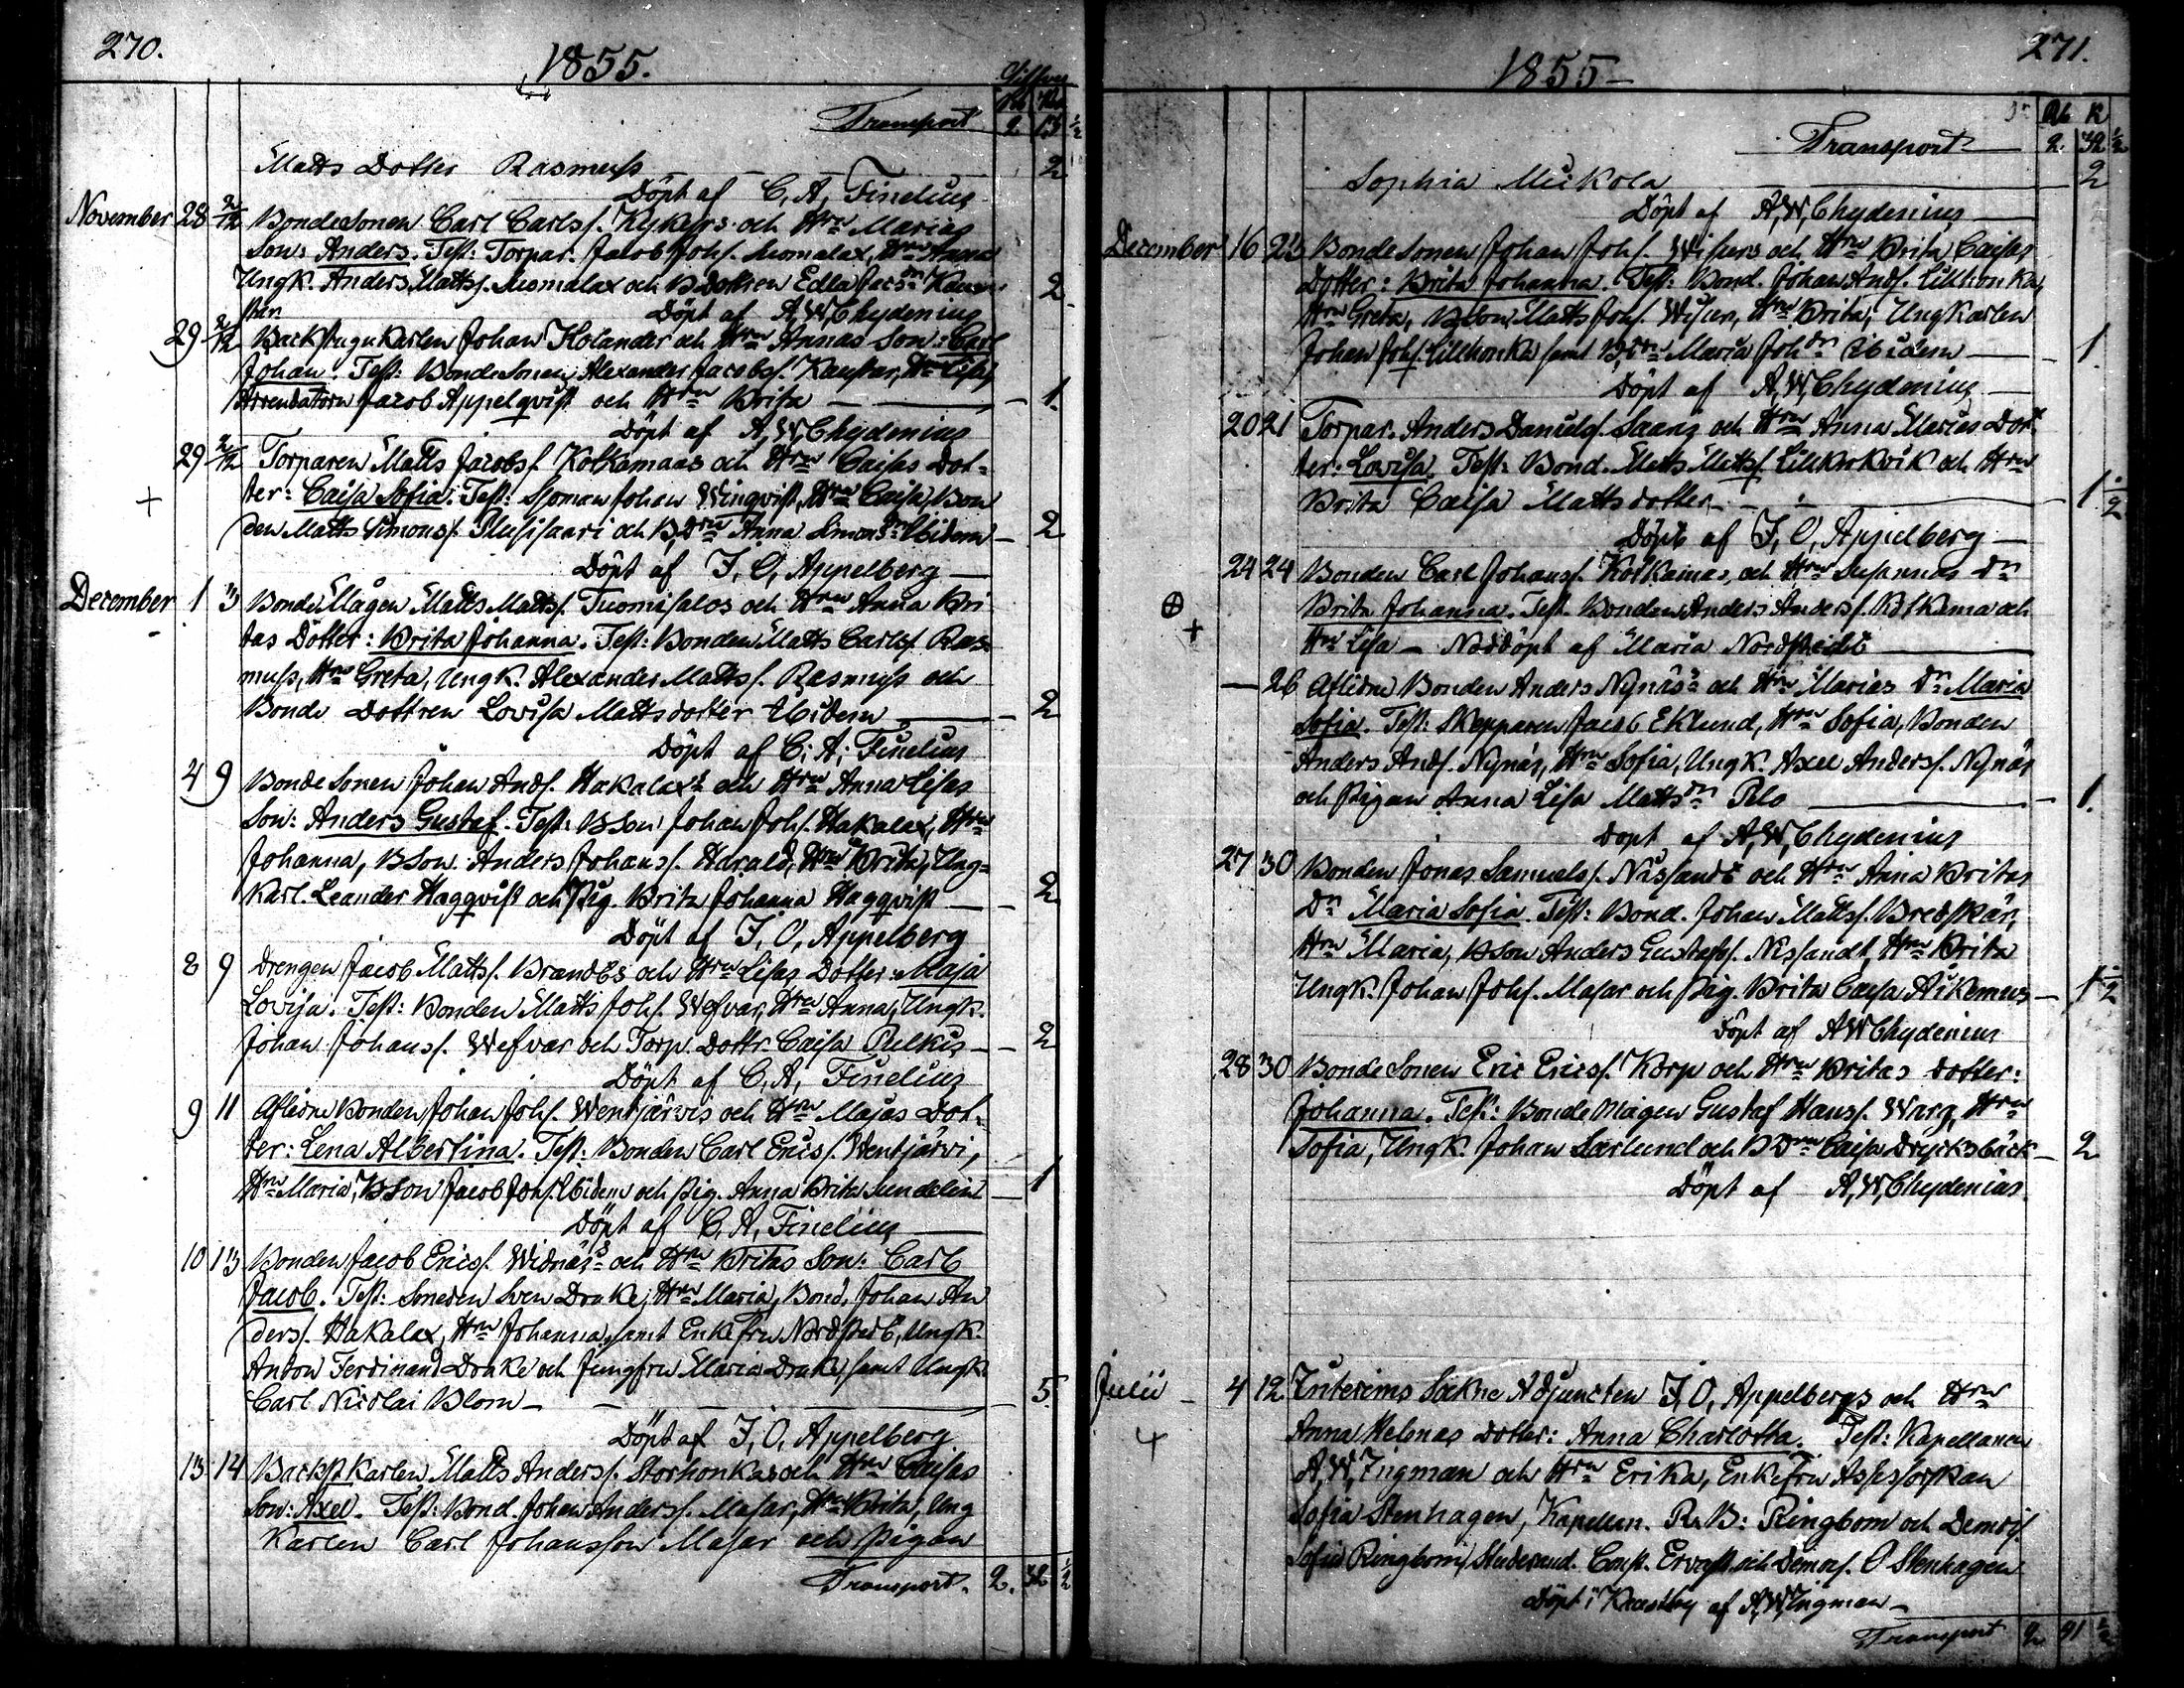 270.
1855.
Transport 2 13 1/2
Matts Dotter Rasmuss 2
Döpt af C, A, Finelius
November 28 2/12 BondeSonen Carl Carlss. Kykers och Hru Marias
Son: Anders. Test: Torpar. Jacob Johs. Suomalax, Hru Anna
Ungk. Anders Mattss. Suomalax och Bdottren Edla Jacsdr
2
Döpt af A, W, Chydenius
29 2/12 Backstugukarlen Johan Holander och Hru Annas Son: Carl
Johan. Test: BondeSonen Alexander Jacobss. Kaustar, Hru Lisa,
Arrendatorn Jacob Appelqvist och Hru Brita 1.
Döpt af A, W, Chydenius
29 2/12 Torparen Matts Jacobss. Kotkamaas och Hru Caisas Dot-
+ ter: Caisa Sofia. Test: Sjoman Johan Winqvist, Hru Caisa, Bon
den Matts Simonss. Plusisaari och B,drn Anna Simonsdr Ibidem 2
Döpt af J, O, Appelberg
December 1 3 BondeMågen Matts Mattss. Tuomisalos och Hru Anna Bri
tas Dotter: Brita Johanna. Test: Bonden Matts Carlss. Ras-
muss, Hru Greta, Ungk. Alexander Mattss. Rasmuss och
Bonde Dottren Lovisa Mattsdotter Ibidem 2
Döpt af C, A, Finelius
4 9 BondeSonen Johan Ands. Hakalaxs och Hru Anna Lisas
Son: Anders Gustaf. Test: BSon Johan Johs. Hakalax, Hru
Johanna, BSon. Anders Johanss. Harald, Hru Brita, Ung-
Karl. Leander Hagqvist och Pig. Brita Johanna Hagqvist 2
Döpt af J, O, Appelberg
8 9 Drengen Jacob Mattss. Brandts och Hru Lisas Dotter: Maja
Lovisa. Test: Bonden Matts Johs. Wefvar, Hru Anna, Ungk.
Johan Johanss. Wefvar och Torp. Dottr. Caisa Pulkis 2
Döpt af C, A, Finelius
9 11 Aflidne Bonden Johan Johs. Wentjärvis och Hru Majas Dot-
ter: Lena Albertina. Test: Bonden Carl Erics. Wentjärvi,
Hru Maria, BSon Jacob Johs. Ibidem och Pig. Anna Brita Sundelin 1
Döpt af C, A, Finelius
10 13 Bonden Jacob Ericss. Widnäss och Hru Britas Son: Carl
Jacob. Test: Smeden Sven Drake, Hru Maria, Bond. Johan An
derss. Hakalax, Hru Johanna, samt Enkefru Nordstedt, Ungk.
Anton Ferdinand Drake och Jungfru Maria Drake, samt Ungk.
Carl Nicolai Blom 5.
Döpt af J, O, Appelberg
13 14 Backst Karlen Matts Anderss. Storhonkas och Hru Caisas
Son: Axel. Test: Bond. Johan Anderss. Masar, Hru Brita, Ung
Karlen Carl Johansson Masar och Pigan
Transport. 2. 32 1/2
271.
1855
Rb K
Transport 2. 32 1/2
Sophia Mickola 2
Döpt af A, W, Chydenius
December 16 23 BondeSonen Johan Johs. Wisters och Hru Brita Caisas
Dotter: Brita Johanna. Test: Bond. Johan Ands. Lillhonka,
Hru Greta, BSon Matts Johs. Hru Brita, Ungkarlen
Johan Johs. Lillhonka samt B,drn Maria Johdr Ibidem 1
Döpt af A, W, Chydenius
20 21 Torpar. Anders Daniels. Saaris och Hru Anna Marias Dot-
ter: Lovisa Test: Bond. Matts Mattss. Lillkrokvik och Hru
Brita Caisa Mattsdotter 1 1/2
Döpt af J, O, Appelberg
24 24 Bonden Carl Johanss. Kotkamas, och Hru Susannas Dr
+ Brita Johanna. Test. Bonden Anders Anderss. Kotkama och
Hru Lisa – Nöddöpt af Maria Nordstedt
26 Aflidne Bonden Anders Nynäss och Hru Marias Dr Maria
Sofia. Test: Skepparen Jacob Eklund, Hru Sofia, Bonden
Anders Ands. Nynäs, Hru Sofia, Ungk. Axel Anderss. Nynäs
och Pigan Anna Lisa Mattsdr Pelo 1.
Döpt af A, W, Chydenius
27 30 Bonden Jonas Samuelss. Nissands och Hru Anna Britas
Dr Maria Sofia. Test: Bond. Johan Mattss. Bredskär,
Hru Maria, BSon Anders Gustafss. Nissandt, Hru Brita
Ungk. Johan Johs. Masar och Pig. Brita Caisa Åikemus 1 1/2
Döpt af A W Chydenius
28 30 BondeSonen Eric Ericss. Korp och Hru Britas dotter:
Johanna. Test: BondeMågen Gustaf Hanss. Warg, Hru
Sofia, Ungk. Johan Sarlund och BDrn Caisa Drycksbäck 2
Döpt af A, W, Chydenius
Julii 4 12 Interims Sokne Adjuncten J, O, Appelbergs och Hru
+ Anna Helenas dotter: Anna Charlotta. Test: Kapellanen
A, W, Ingman och Hru Erika, Enkefru Assessorskan
Sofia Stenhagen, Kapellan. R. B: Ringbom och Demois.
Sofie Ringbom, Studerand. Const. Ervast och Demois. O Stenhagen
Döpt i af A, W, Ingman
Transport 2 91 1/2